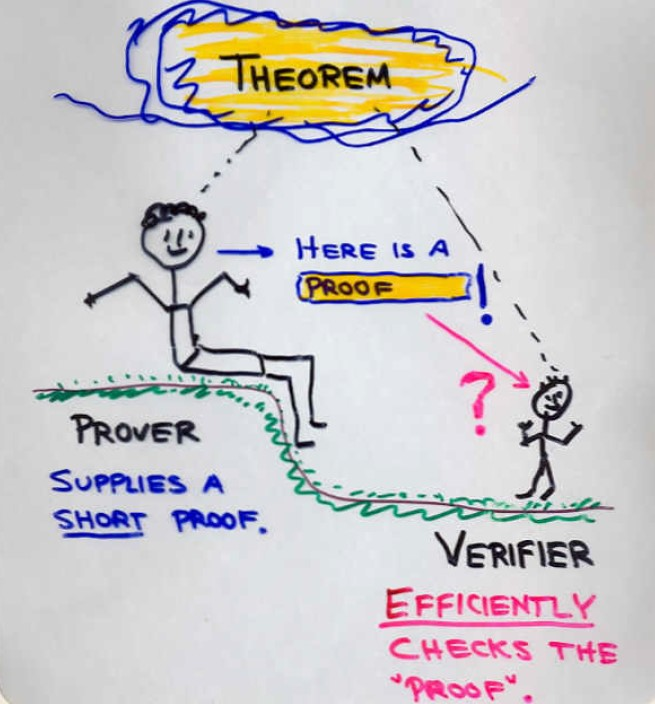 THEOREM
HERE IS A
PROOF !
?
PROVER
SUPPLIES A
SHORT PROOF.
VERIFIER
EFFICIENTLY
CHECKS THE
"PROOF".